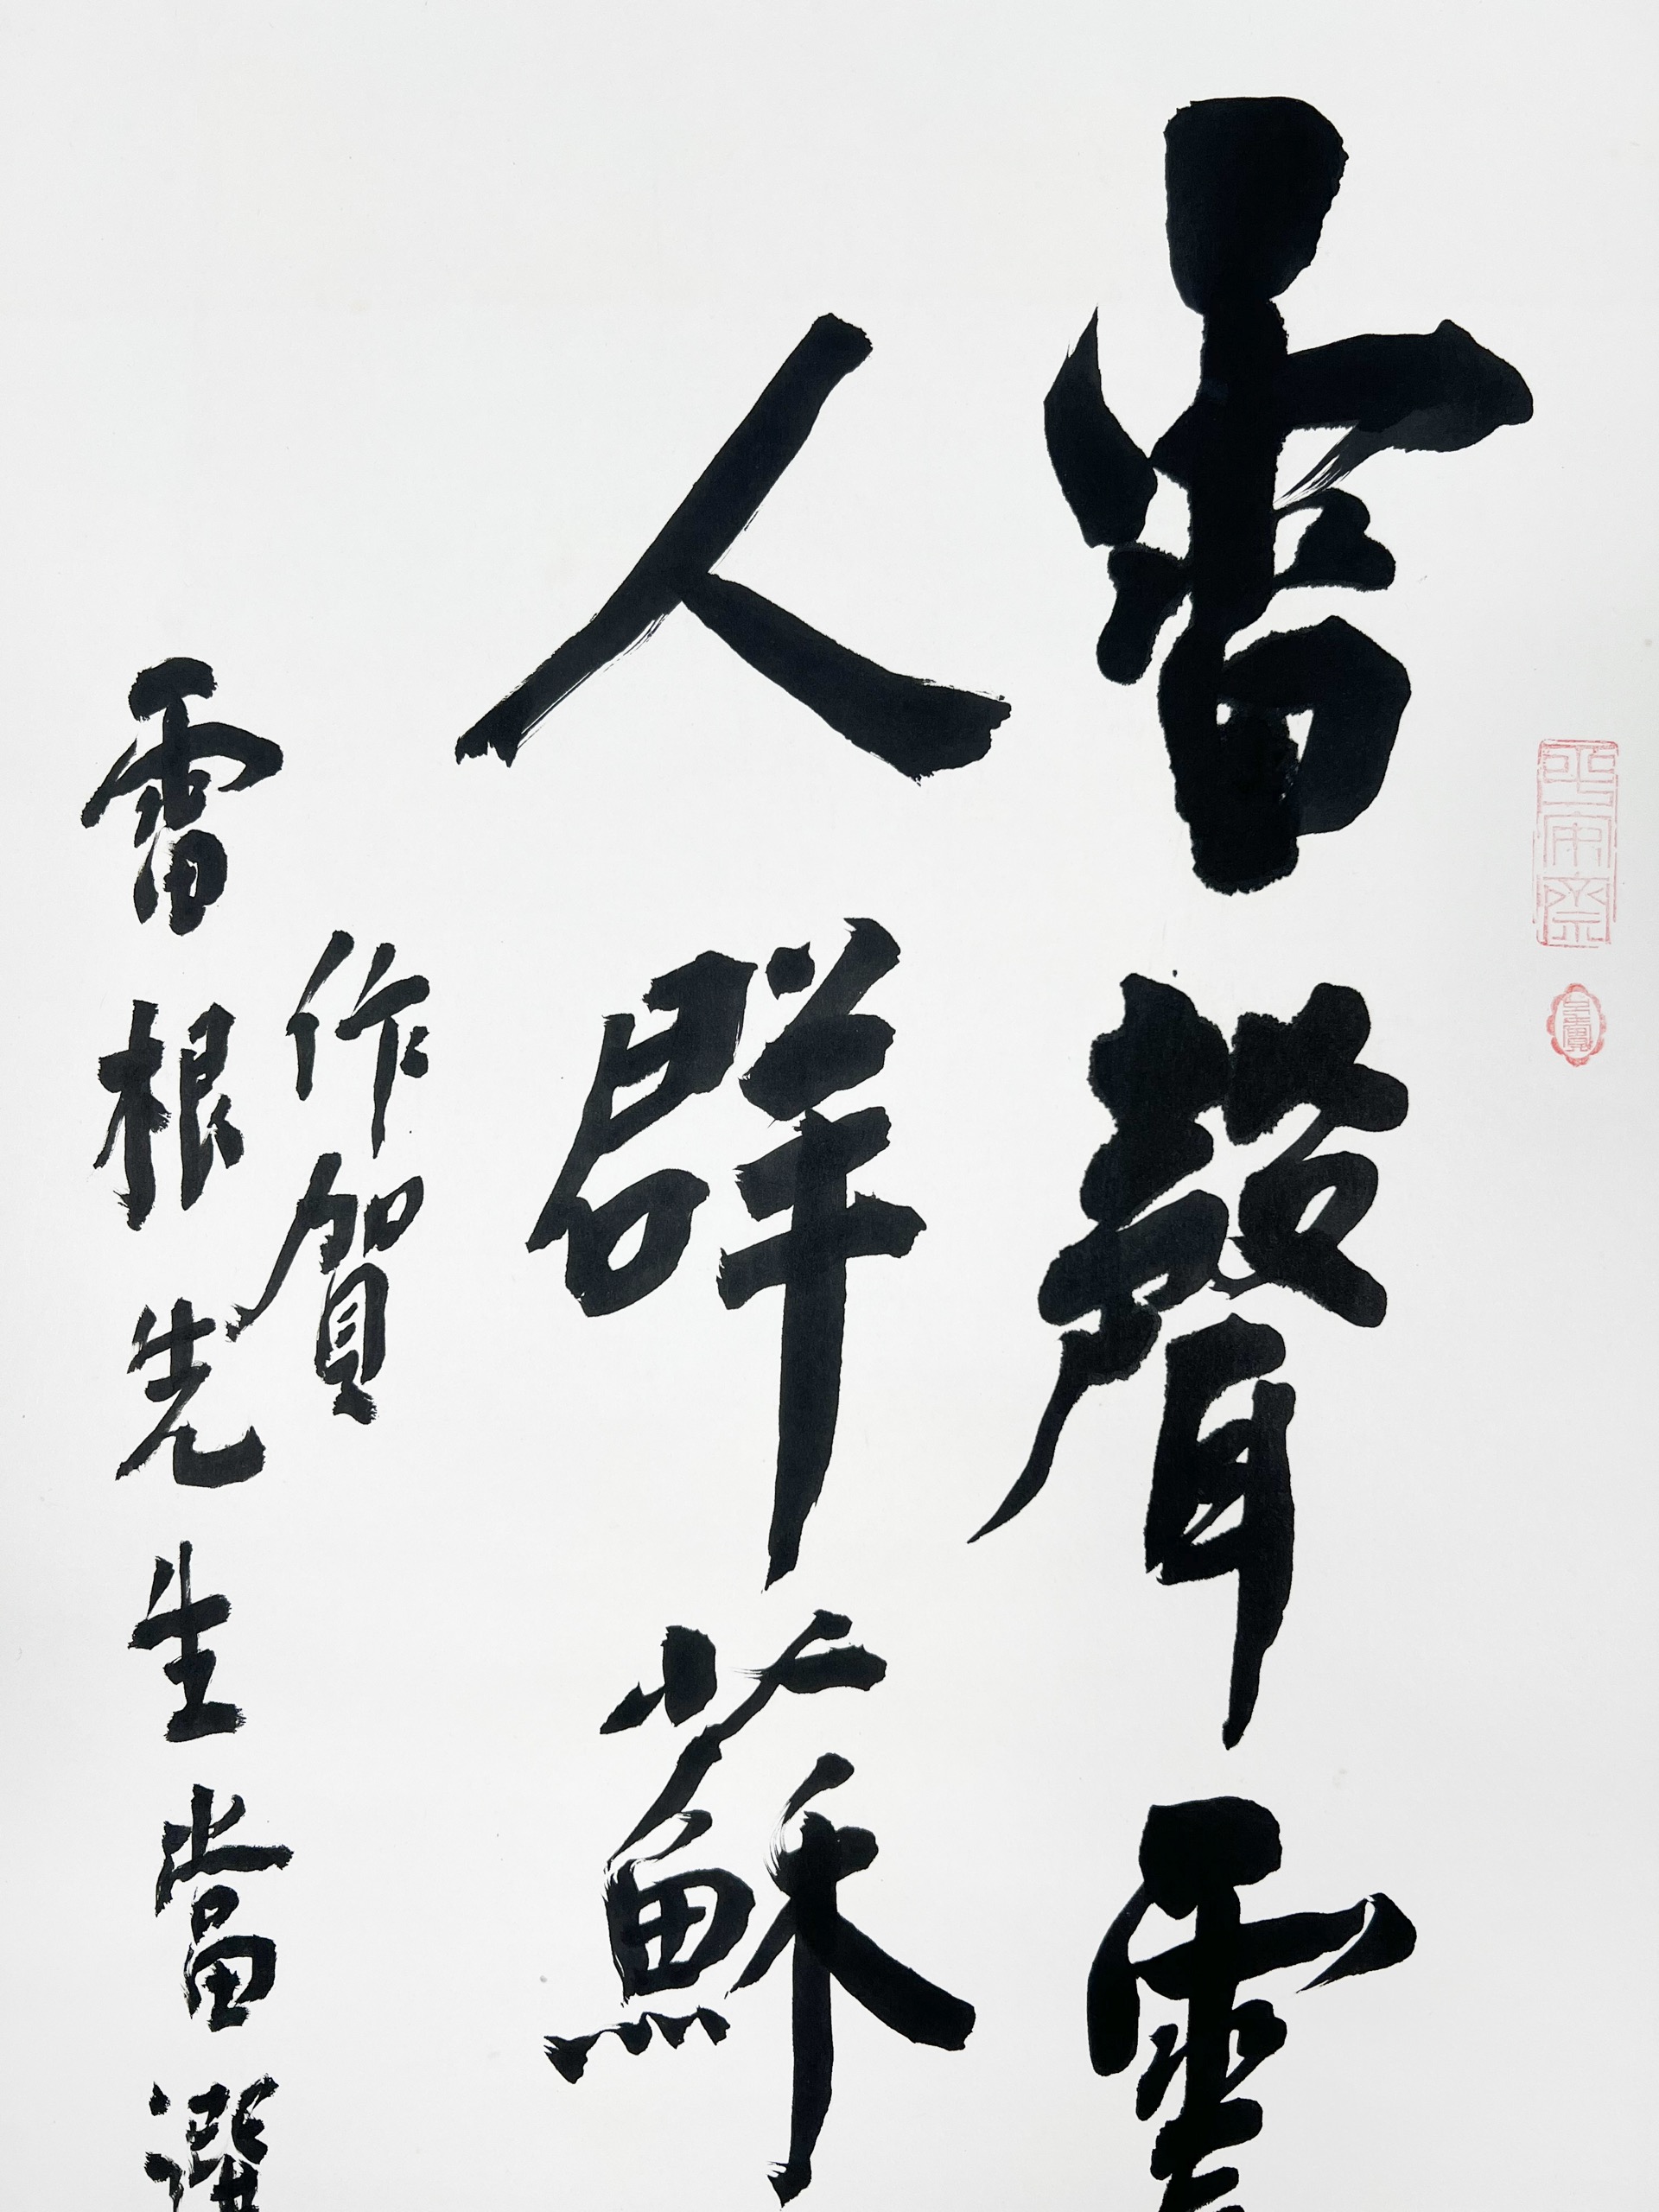 雷聲震
人群蘇
作賀
雷根先生當選